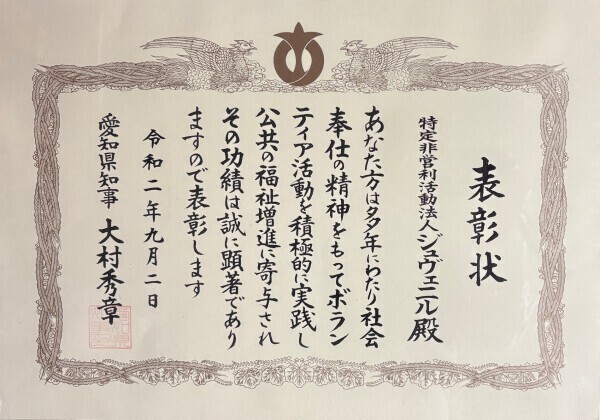 表彰状
特定非営利活動法人ジュヴェニル殿
あなた方は多年にわたり社会
奉仕の精神をもってボラン
ティア活動を積極的に実践し
公共の福祉増進に寄与され
その功績は誠に顕著であり
ますので表彰します
令和二年九月二日
愛知県知事 大村秀章